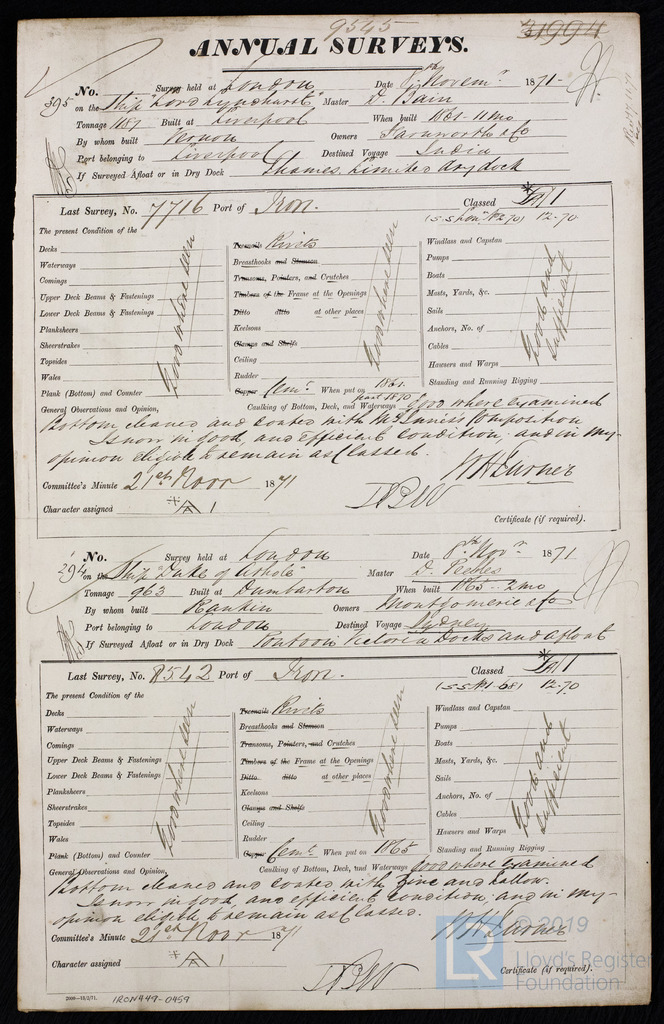 9545
31994
ANNUAL SURVEYS.
No. 395 Survey held at London Date 8th Novemr 1871
on the Ship "Lord Lyndhurst" Master D. Bain
Tonnage 1187 Built at Liverpool When built 1861-11mo
By whom built Vernon Owners Farnworth & Co
Port belonging to Liverpool Destined Voyage India
If Surveyed Afloat or in Dry Dock Thames Limited dry dock
Last Survey, No. 7716 Port of Iron. Classed *A1
12-70
The present Condition of the
Decks
Waterways
Comings
Upper Deck Beams & Fastenings
Lower Deck Beams & Fastenings
Planksheers
Sheerstrakes
Topsides
Wales
Plank (Bottom) and Counter
Good where seen
Treenails Rivets
Breasthooks and Stemson
Transoms, Pointers, and Crutches
Timbers of the Frame at the Openings
Ditto ditto at other places
Keelsons
Clamps and Shelfs
Ceiling
Rudder
Copper Cemt. When put on 1861
part 1870
Good where seen
Windlass and Capstan
Pumps
Boats
Masts, Yards, &c.
Sails
Anchors, No. of
Cables
Hawsers and Warps
Standing and Running Rigging
Good and Sufficient
General Observations and Opinion, Caulking of Bottom, Deck, and Waterways Good where examined
Bottom cleaned and coated with McInnis's Composition
Is now in good and efficient condition, and in my
opinion eligible to remain as Classed.
W H Turner
Committee's Minute 21st Novr 1871
Character assigned *A 1
Certificate (if required).
No. 294 Survey held at London Date 8th Novr 1871
on the Ship "Duke of Athole" Master D. Peebles
Tonnage 963 Built at Dumbarton When built 1865-2mo
By whom built Rankin Owners Montgomerie & Co
Port belonging to London Destined Voyage Sydney
If Surveyed Afloat or in Dry Dock Pontoon Victoria Docks and afloat
Last Survey, No. 8542 Port of Iron. Classed *A1
(S.S. No1-68) 12-70
The present Condition of the
Decks
Waterways
Comings
Upper Deck Beams & Fastenings
Lower Deck Beams & Fastenings
Planksheers
Sheerstrakes
Topsides
Wales
Plank (Bottom) and Counter
Good where seen
Treenails Rivets
Breasthooks and Stemson
Transoms, Pointers, and Crutches
Timbers of the Frame at the Openings
Ditto ditto at other places
Keelsons
Clamps and Shelfs
Ceiling
Rudder
Copper Cemt. When put on 1865
Good where seen
Windlass and Capstan
Pumps
Boats
Masts, Yards, &c.
Sails
Anchors, No. of
Cables
Hawsers and Warps
Standing and Running Rigging
Good and Sufficient
General Observations and Opinion, Caulking of Bottom, Deck, and Waterways Good where examined
Bottom cleaned and coated with zinc and tallow.
Is now in good and efficient condition, and in my
opinion eligible to remain as Classed.
W H Turner
Committee's Minute 21st Novr 1871
Character assigned *A 1
Certificate (if required).
2000—13/2/71.
IRON449-0459
© 2019
LR
Lloyd's Register
Foundation